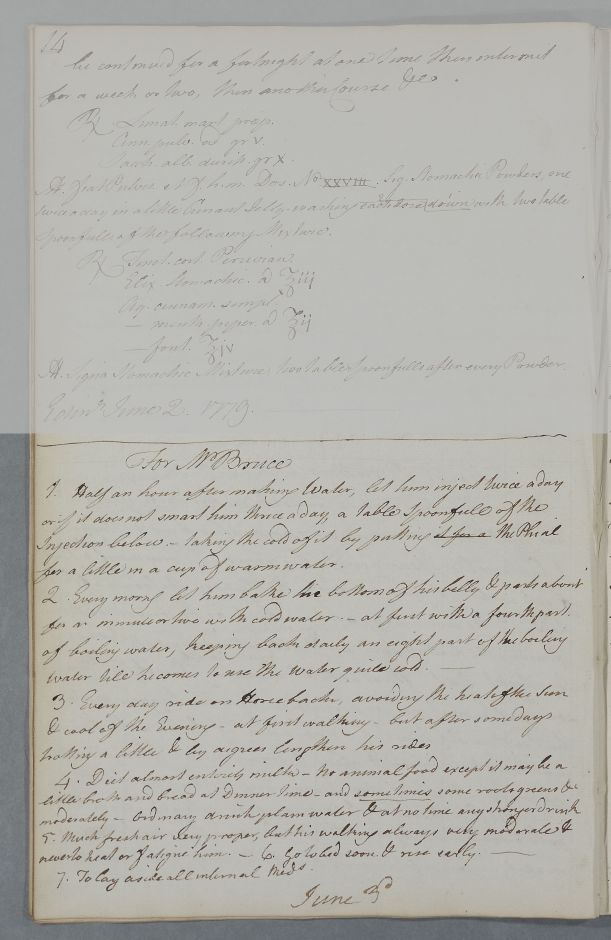 14
be continued for a fortnight at one time then intermit
for a week or two, then another Course &c.
℞ Limat. mart. prep.
Cinn. pulv. aa gr v.
Tart. alb. gr x.
M. fiat Pulvis s. t. h. m. Dos. No XXVIII. Sig. Stomachic Powders, one
twice a day in a little Currant Jelly washing each dose down with two table
spoonfulls of the following Mixture.
℞ Tinct. cort. Peruvian.
Elix. Stomachic. a ℥iij
Aq. cinnam. simpl.
— menth. pyper. a ℥ij
— font. ℥iv
M. Signa Stomachic Mixture two table spoonfulls after every Powder.
Edinr. June 2. 1779.
For Mr Bruce
1. Half an hour after making Water, let him inject twice a day
or if it does not smart him thrice a day, a table spoonfull of the
Injection below — taking the cold of it by putting it for a the Phial
for a little in a cup of warm water.
2. Every morng let him bathe the bottom of his belly & parts about
for a minute or two with cold water. — at first with a fourth part
of boiling water, keeping back daily an eight part of the boiling
water till he comes to use the water quite cold. —
3. Every day ride on Horseback, avoiding the heat of the Sun
& cool of the Evening — at first walking — but after some days
trotting a little & by degrees lengthen his rides
4. Diet almost entirely milk — No animal food except it may be a
little broth and bread at Dinner time — and sometimes some roots greens &c
moderately — Ordinary drink plain water & at no time any stronger drink
5. Much fresh air very proper, but his walking always very moderate &
never to heat or fatigue him. — 6. Go to bed soon & rise early. —
7. To lay aside all internal Meds.
June 3d